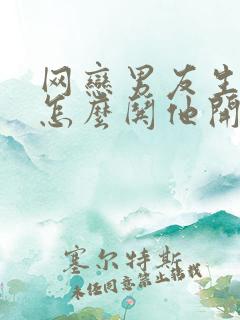 网恋男友生
怎麼閧他開
塞尔特斯
未经同意禁止转载